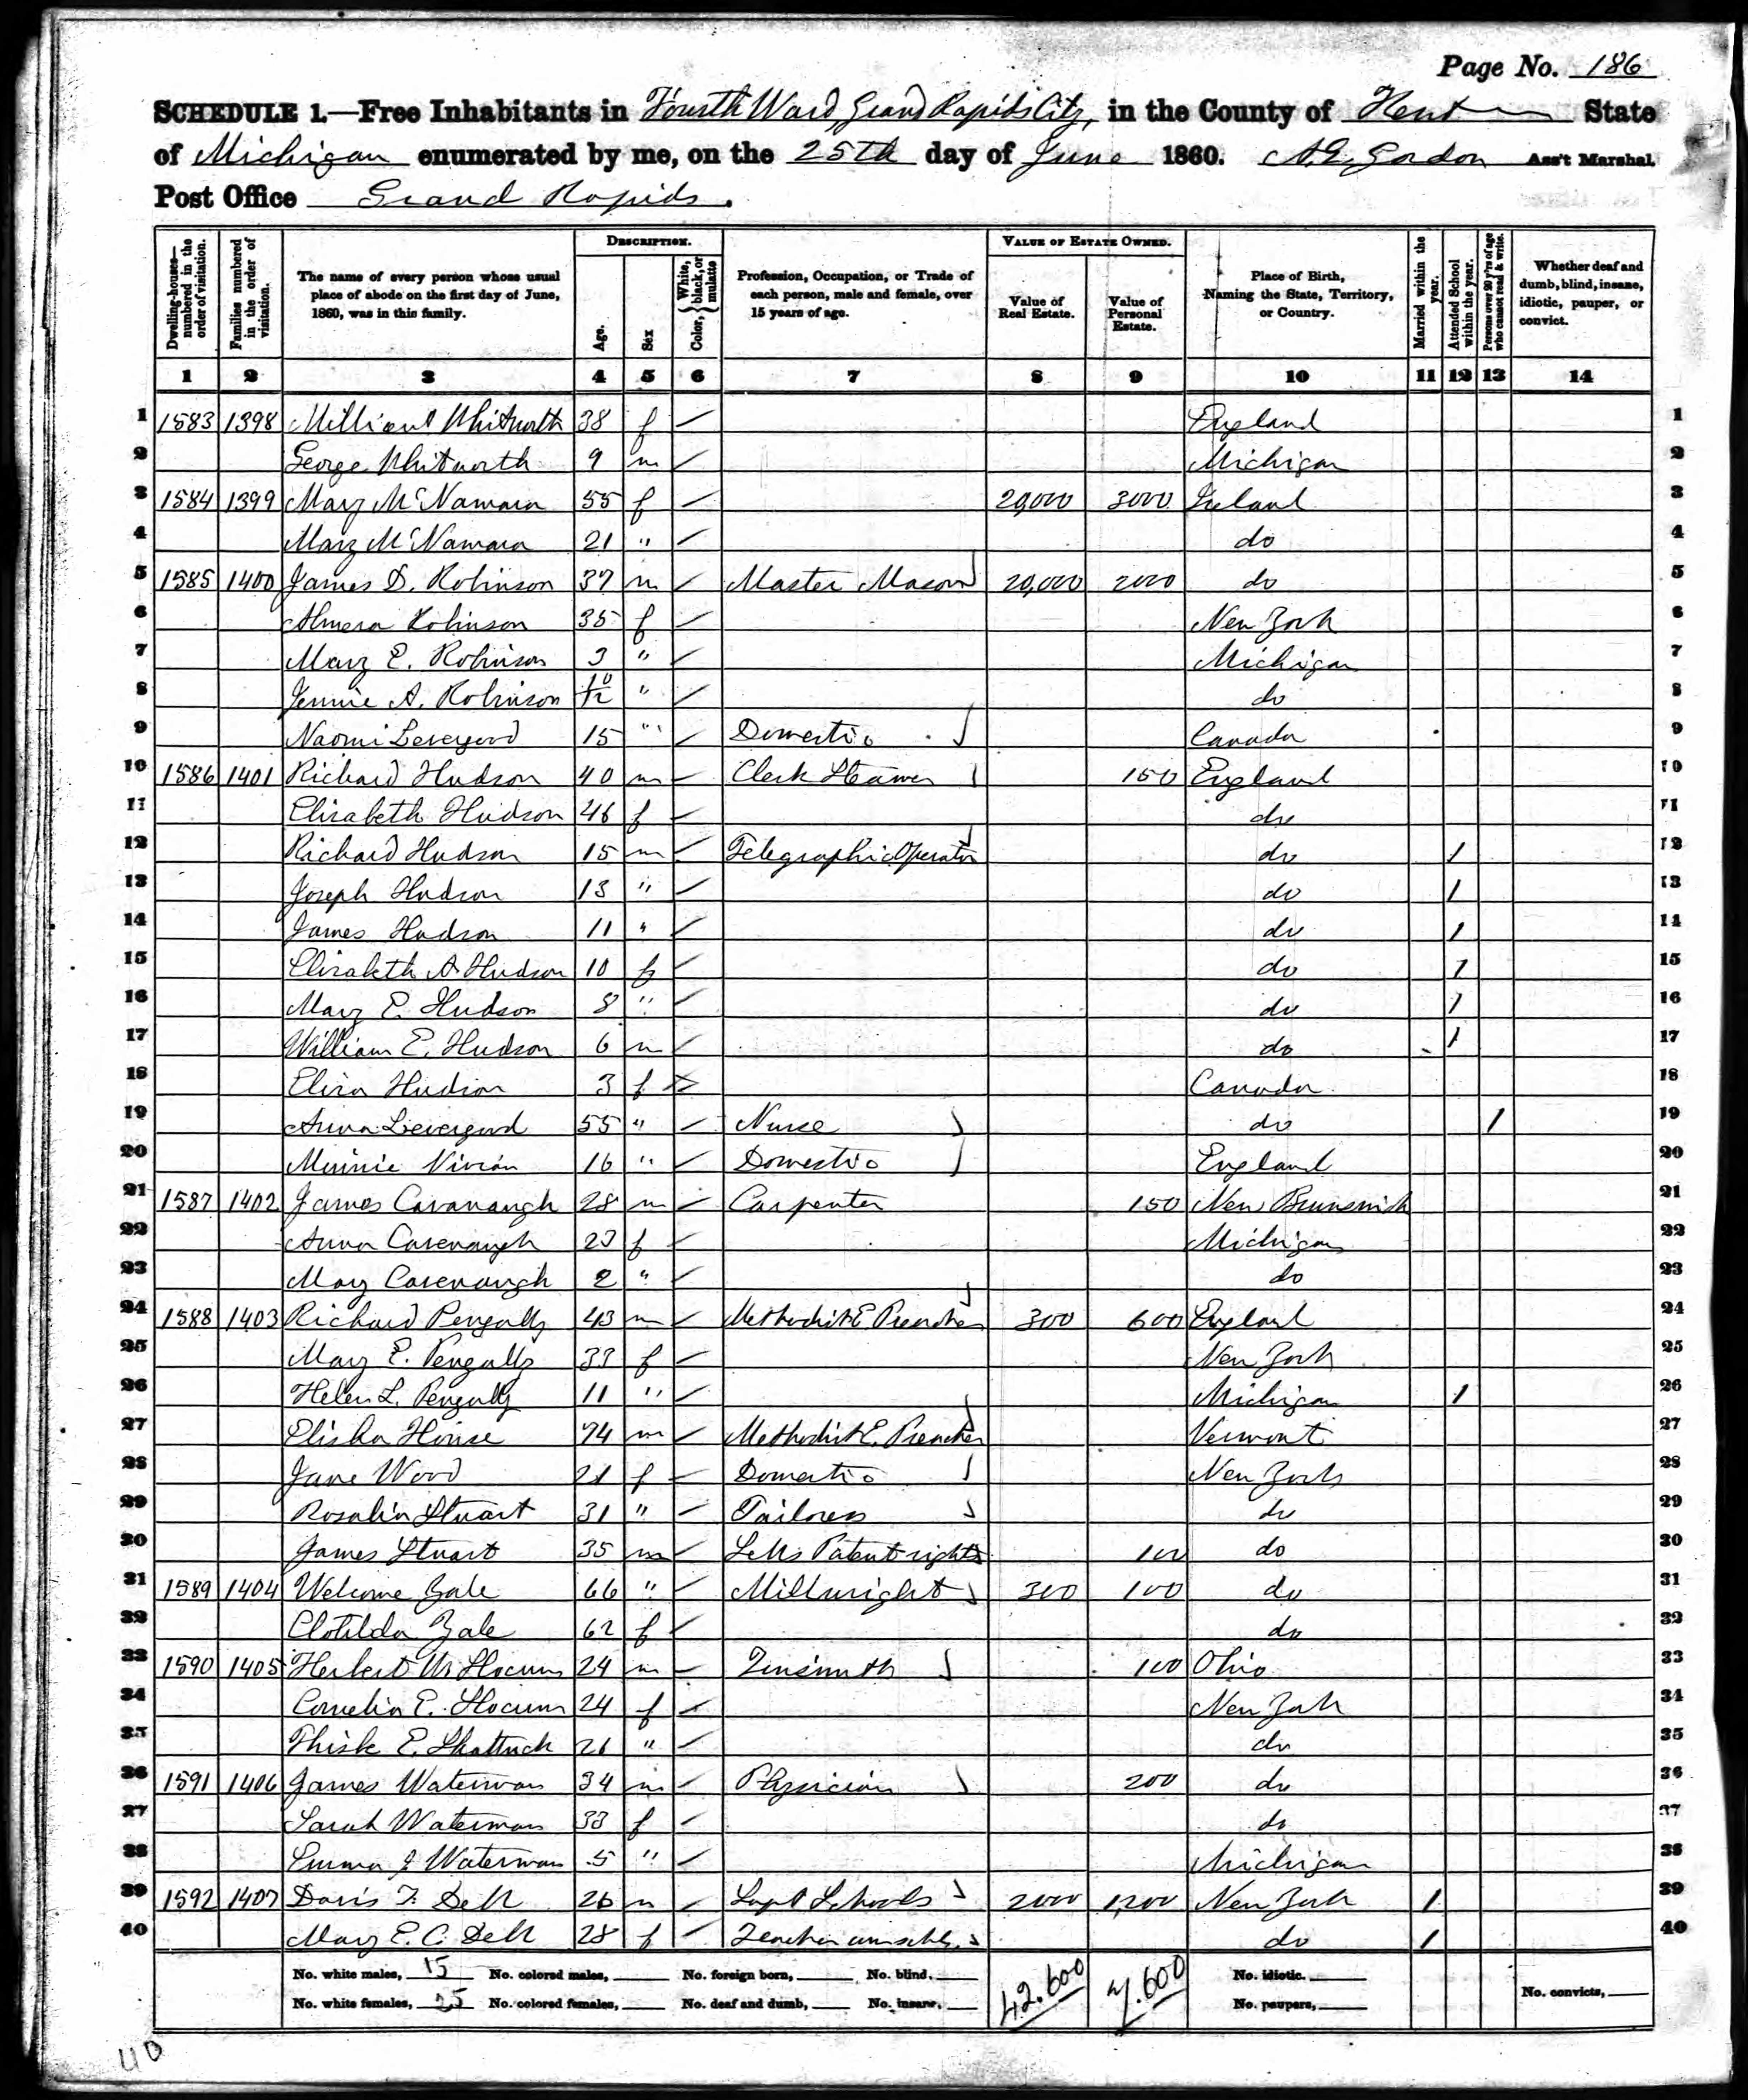 Page No. 186
SCHEDULE 1.—Free Inhabitants in Fourth Ward, Grand Rapids City, in the County of Kent State
of Michigan enumerated by me, on the 25th day of June 1860. A.E. Gordon Ass't Marshal.
Post Office Grand Rapids.
Dwelling-houses—numbered in the order of visitation. Families numbered in the order of visitation. The name of every person whose usual place of abode on the first day of June, 1860, was in this family. DESCRIPTION. Age. Sex Color, White, black, or mulatto Profession, Occupation, or Trade of each person, male and female, over 15 years of age. VALUE OF ESTATE OWNED. Value of Real Estate. Value of Personal Estate. Place of Birth, Naming the State, Territory, or Country. Married within the year. Attended School within the year. Persons over 20 y'rs of age who cannot read & write. Whether deaf and dumb, blind, insane, idiotic, pauper, or convict.
1 2 3 4 5 6 7 8 9 10 11 12 13 14
1 1583 1398 Millicent Whitworth 38 f England 1
2 George Whitworth 9 m Michigan 2
3 1584 1399 Mary McNamara 55 f 20,000 3000 Ireland 3
4 Mary McNamara 21 " do 4
5 1585 1400 James D. Robinson 37 m Master Mason 20,000 2000 do 5
6 Almera Robinson 35 f New York 6
7 Mary E. Robinson 3 " Michigan 7
8 Jennie A. Robinson 10/12 " do 8
9 Naomi 15 " Domestic Canada 9
10 1586 1401 Richard Hudson 40 m Clerk Steamer 150 England 10
11 Elizabeth Hudson 46 f do 11
12 Richard Hudson 15 m Telegraphic Operator do 1 12
13 Joseph Hudson 13 " do 1 13
14 James Hudson 11 " do 1 14
15 Elizabeth A. Hudson 10 f do 1 15
16 Mary E. Hudson 8 " do 1 16
17 William E. Hudson 6 m do 1 17
18 Eliza Hudson 3 f Canada 18
19 Anna 55 " Nurse do 1 19
20 Minnie Vivian 16 " Domestic England 20
21 1587 1402 James Cavanaugh 28 m Carpenter 150 New Brunswick 21
22 Anna Cavenaugh 23 f Michigan 22
23 Mary Cavenaugh 2 " do 23
24 1588 1403 Richard Pengally 43 m Methodist E Preacher 300 600 England 24
25 Mary E. Pengally 33 f New York 25
26 Helen L. Pengally 11 " Michigan 1 26
27 Elisha House 74 m Methodist E. Preacher Vermont 27
28 Jane Wood 21 f Domestic New York 28
29 Rosalia Stuart 31 " Tailoress do 29
30 James Stuart 35 m Sells Patent rights 100 do 30
31 1589 1404 Welcome Yale 66 " Millwright 300 100 do 31
32 Clotilda Yale 62 f do 32
33 1590 1405 Herbert W. Slocum 24 m Tinsmith 100 Ohio 33
34 Cornelia E. Slocum 24 f New York 34
35 E. Shattuck 21 " do 35
36 1591 1406 James Waterman 34 m Physician 200 do 36
37 Sarah Waterman 33 f do 37
38 Emma J Waterman 5 " Michigan 38
39 1592 1407 Davis F. Dell 26 m Supt Schools 2000 1,200 New York 1 39
40 Mary E. C. Dell 28 f Teacher do 1 40
No. white males, 15 No. colored males, No. foreign born, No. blind. 42.600 7.600 No. idiotic.
No. white females, 25 No. colored females, No. deaf and dumb, No. insane, No. paupers, No. convicts,
40